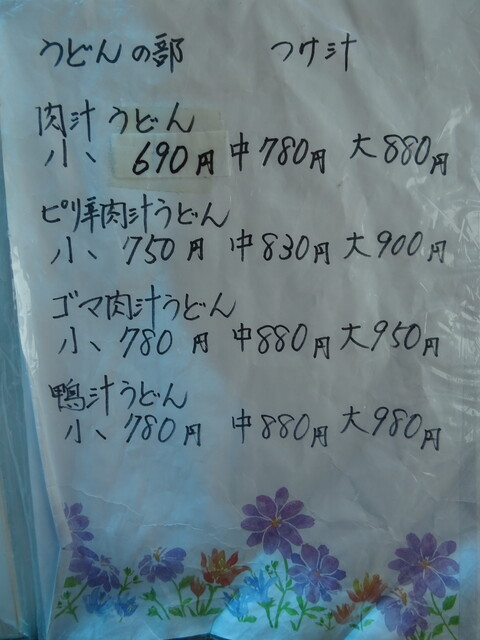 うどんの部 つけ汁
肉汁うどん
小、 690円 中780円 大880円
ピリ辛肉汁うどん
小、750円 中830円 大900円
ゴマ肉汁うどん
小、780円 中880円 大950円
鴨汁うどん
小、780円 中880円 大980円